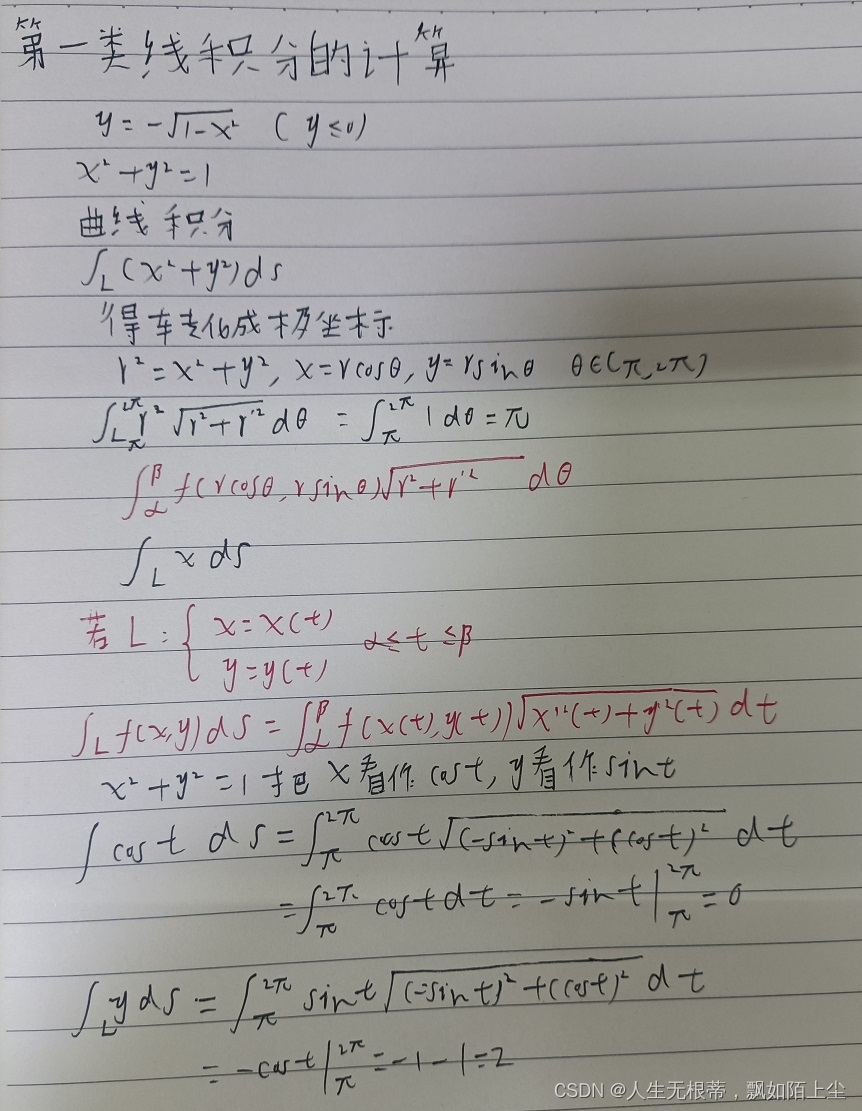 第一类线积分的计算
y = -√(1-x²) ( y≤0)
x² + y² = 1
曲线积分
∫_L (x² + y²) ds
得转化成极坐标
r² = x² + y², x = r cosθ, y = r sinθ θ∈(π, 2π)
∫_{L π}^{2π} r² √(r² + r'²) dθ = ∫_π^{2π} 1 dθ = π
∫_α^β f(r cosθ, r sinθ) √(r² + r'²) dθ
∫_L x ds
若 L: { x = x(t)
y = y(t) α ≤ t ≤ β
∫_L f(x,y) ds = ∫_α^β f(x(t), y(t)) √(x'²(t) + y'²(t)) dt
x² + y² = 1 把 x 看作 cos t, y 看作 sin t
∫ cos t ds = ∫_π^{2π} cos t √((-sin t)² + (cos t)²) dt
= ∫_π^{2π} cos t dt = -sin t |_π^{2π} = 0
∫_L y ds = ∫_π^{2π} sin t √((-sin t)² + (cos t)²) dt
= -cos t |_π^{2π} = -1 -1 = 2
CSDN @人生无根蒂，飘如陌上尘